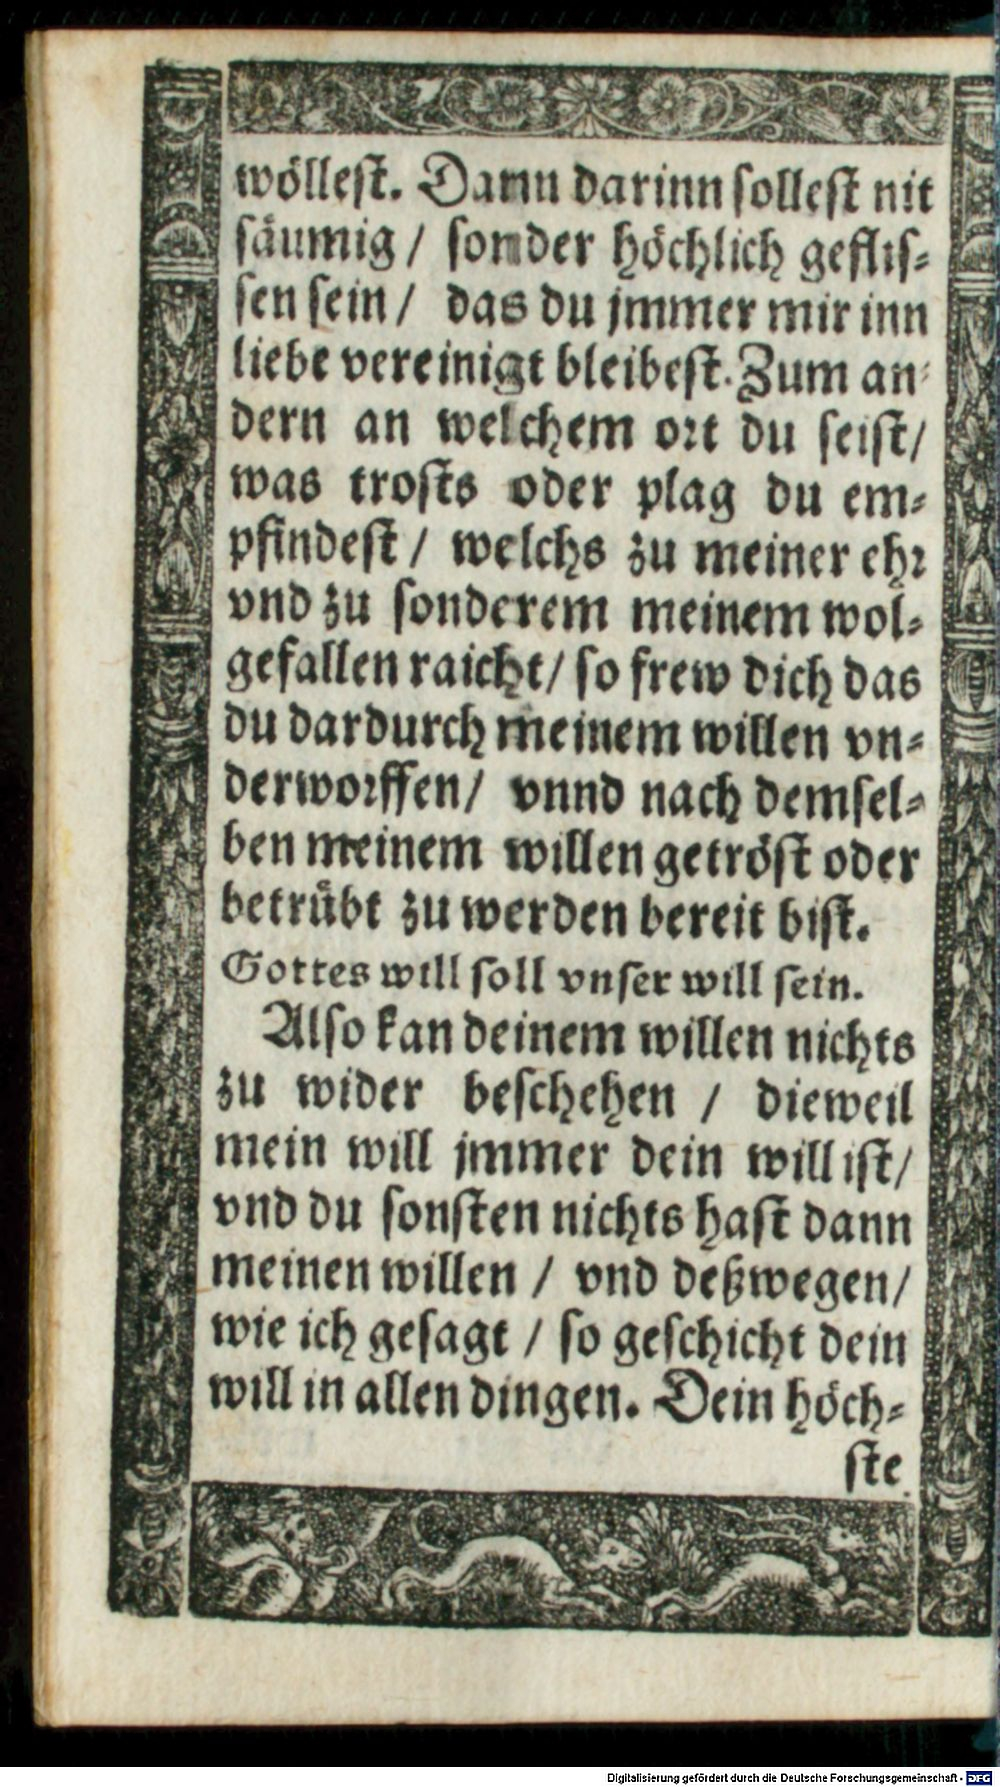 wöllest. Dann darinn sollest nit
säumig / sonder höchlich geflis-
sen sein / das du jmmer mir inn
liebe vereinigt bleibest. Zum an-
dern an welchem ort du seist /
was trosts oder plag du em-
pfindest / welchs zu meiner ehr
vnd zu sonderem meinem wol-
gefallen raicht / so frew dich das
du dardurch meinem willen vn-
derworffen / vnnd nach demsel-
ben meinem willen getröst oder
betrübt zu werden bereit bist.
Gottes will soll vnser will sein.
Also kan deinem willen nichts
zu wider beschehen / dieweil
mein will jmmer dein will ist /
vnd du sonsten nichts hast dann
meinen willen / vnd deßwegen /
wie ich gesagt / so geschicht dein
will in allen dingen. Dein höch-
ste
Digitalisierung gefördert durch die Deutsche Forschungsgemeinschaft - DFG